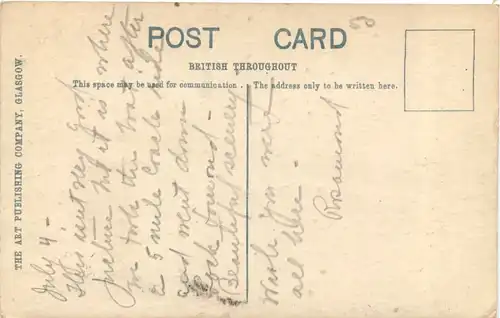 POST CARD
BRITISH THROUGHOUT
This space may be used for communication.
The address only to be written here.
THE ART PUBLISHING COMPANY, GLASGOW.
July 4 -
This isn't very good
picture but it is where
we took the boat after
a 5 mile coach ride
and went down
Loch Lomond -
Beautiful scenery
Wish you were
all here -
Rosamond